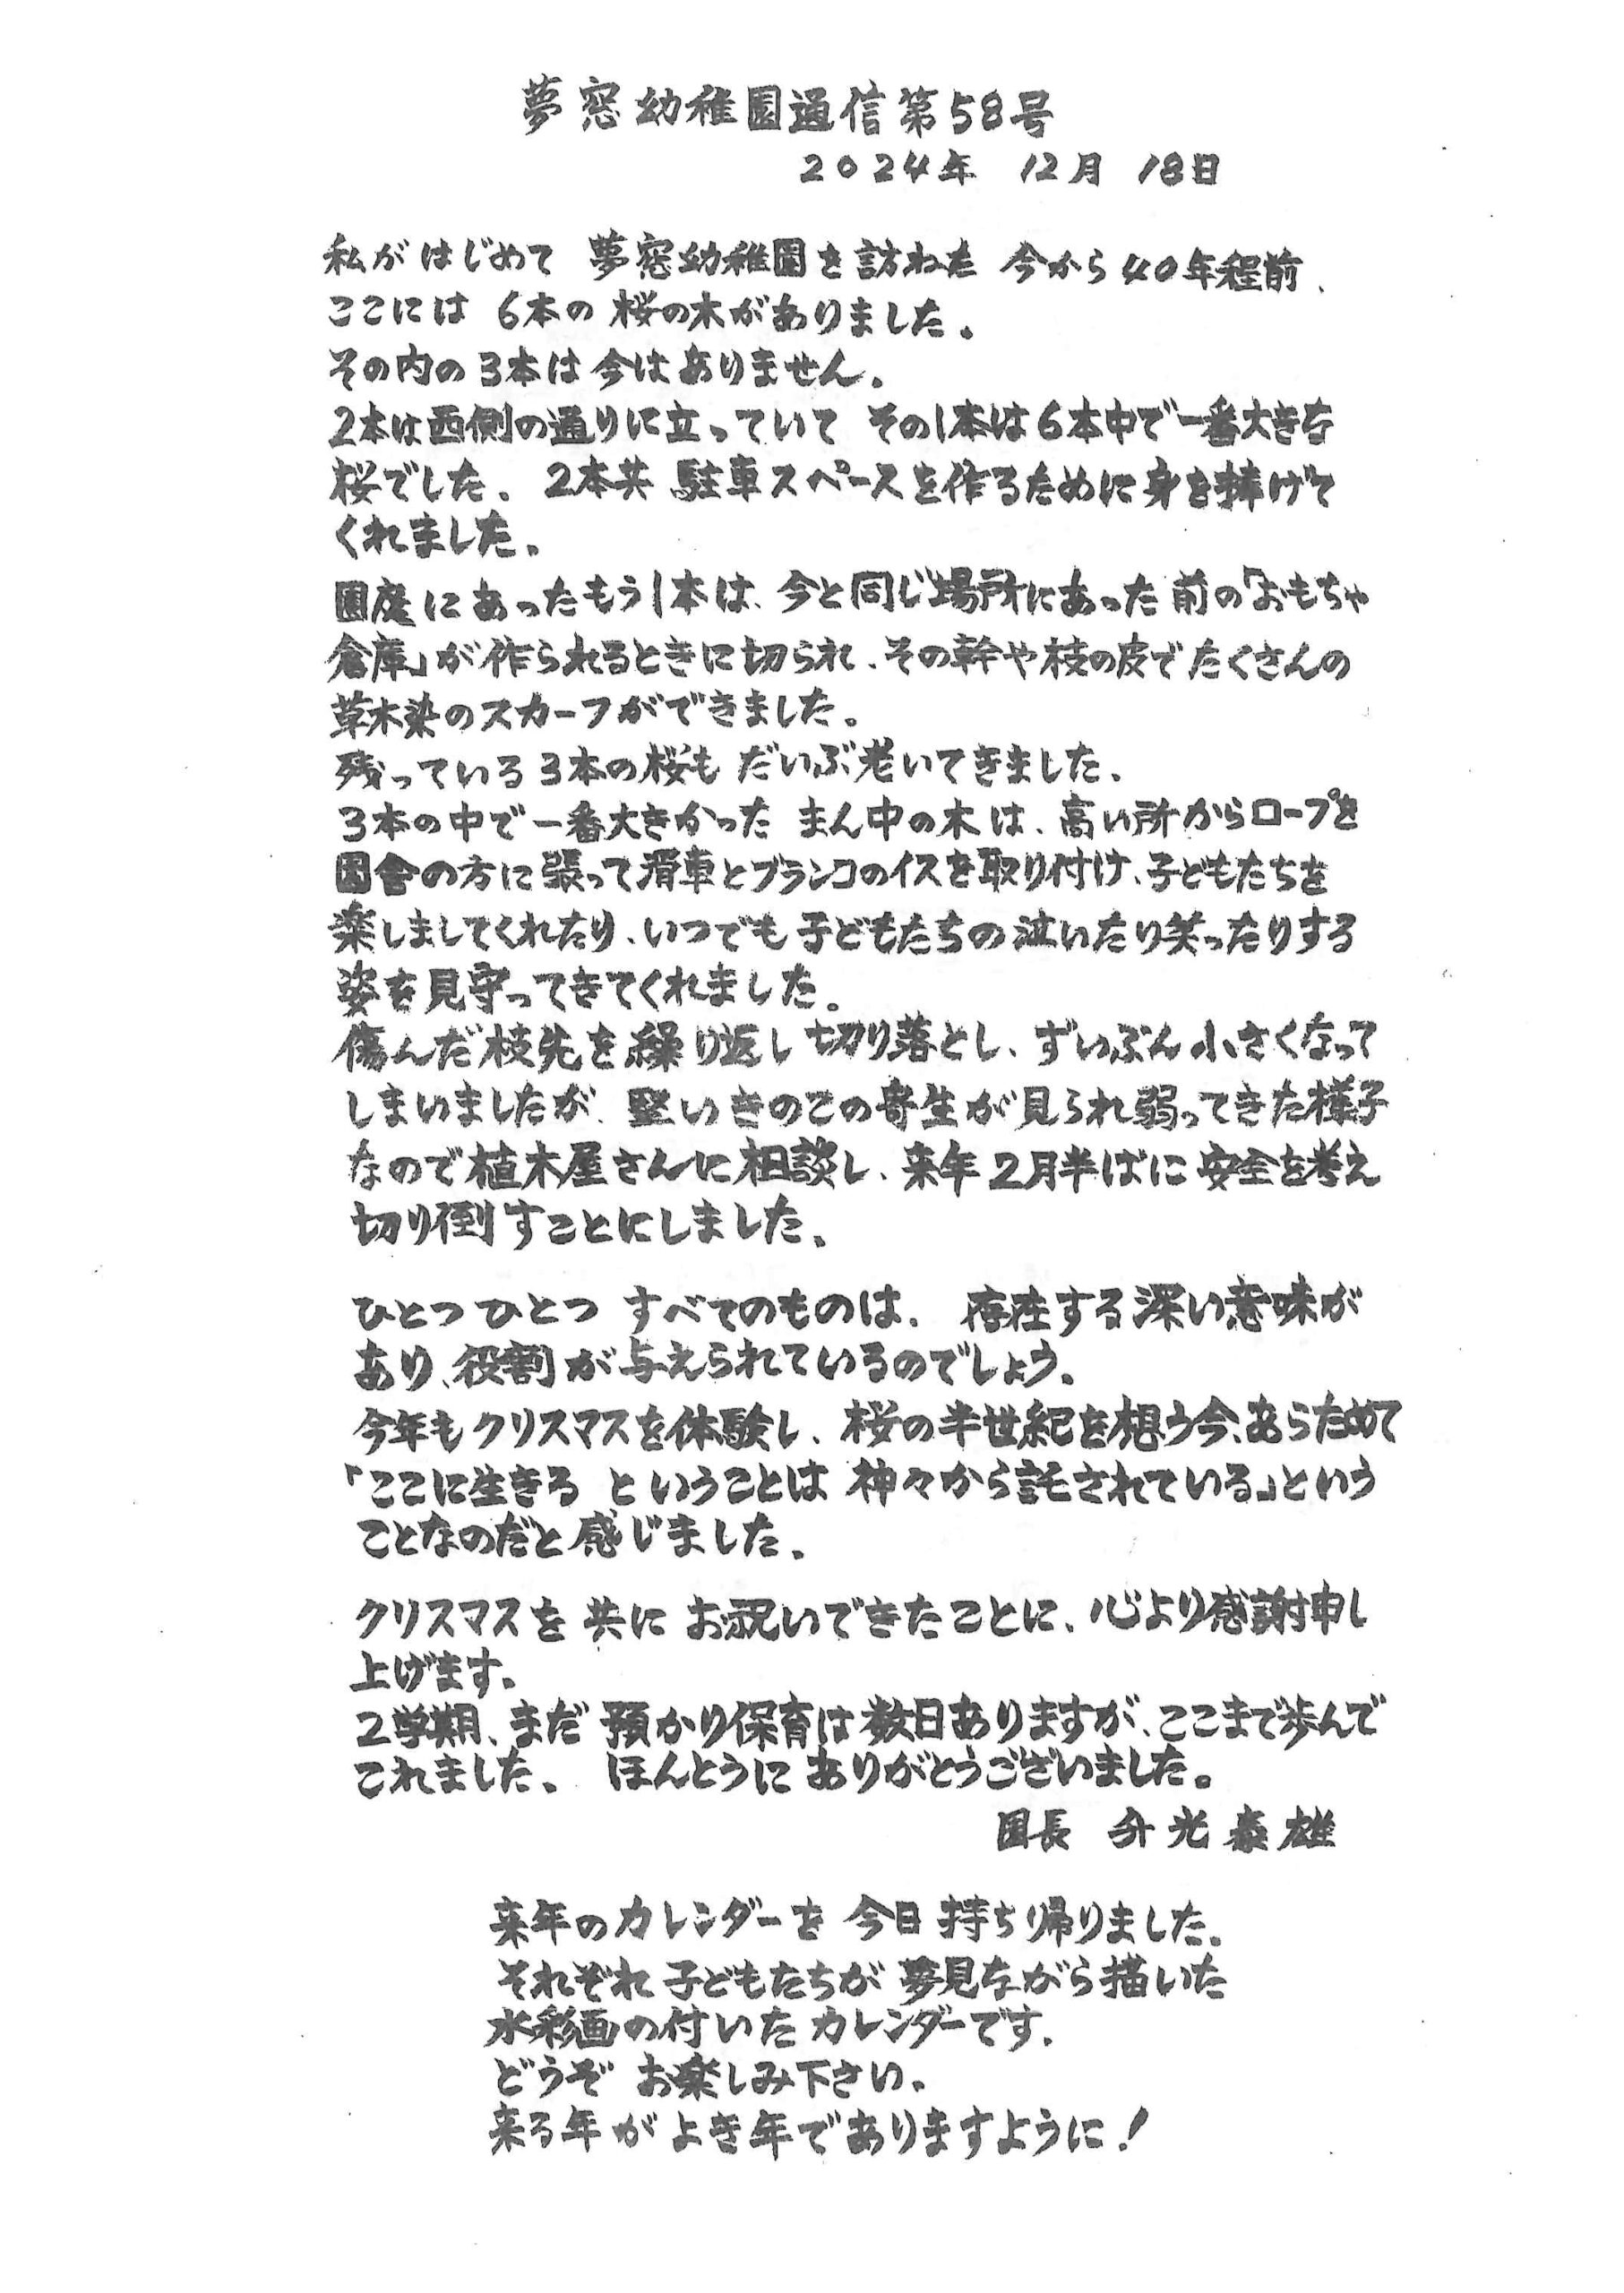 夢窓幼稚園通信第58号
2024年 12月 18日
私がはじめて 夢窓幼稚園を訪ねた 今から40年程前、
ここには 6本の 桜の木がありました。
その内の3本は今はありません。
2本は西側の通りに立っていて その1本は6本中で一番大きな
桜でした。2本共 駐車スペースを作るために身を捧げて
くれました。
園庭にあったもう1本は、今と同じ場所にあった前の「おもちゃ
倉庫」が作られるときに切られ、その幹や枝の皮でたくさんの
草木染のスカーフができました。
残っている3本の桜も だいぶ老いてきました。
3本の中で一番大きかった まん中の木は、高い所からロープを
園舎の方に張って滑車とブランコのイスを取り付け、子どもたちを
楽しましてくれたり、いつでも子どもたちの泣いたり笑ったりする
姿を見守ってきてくれました。
傷んだ枝先を繰り返し切り落とし、ずいぶん小さくなって
しまいましたが、堅いきのこの寄生が見られ弱ってきた様子
なので植木屋さんに相談し、来年2月半ばに安全を考え
切り倒すことにしました。
ひとつひとつ すべてのものは、存在する深い意味が
あり、役割が与えられているのでしょう。
今年もクリスマスを体験し、桜の半世紀を想う今、あらためて
「ここに生きる ということは 神々から託されている」という
ことなのだと感じました。
クリスマスを 共に お祝いできたことに、心より感謝申し
上げます。
2学期、まだ 預かり保育は数日ありますが、ここまで歩んで
これました。ほんとうにありがとうございました。
園長 升光泰雄
来年のカレンダーを 今日持ち帰りました。
それぞれ子どもたちが夢見ながら描いた
水彩画の付いたカレンダーです。
どうぞ お楽しみ下さい。
来る年がよき年でありますように！